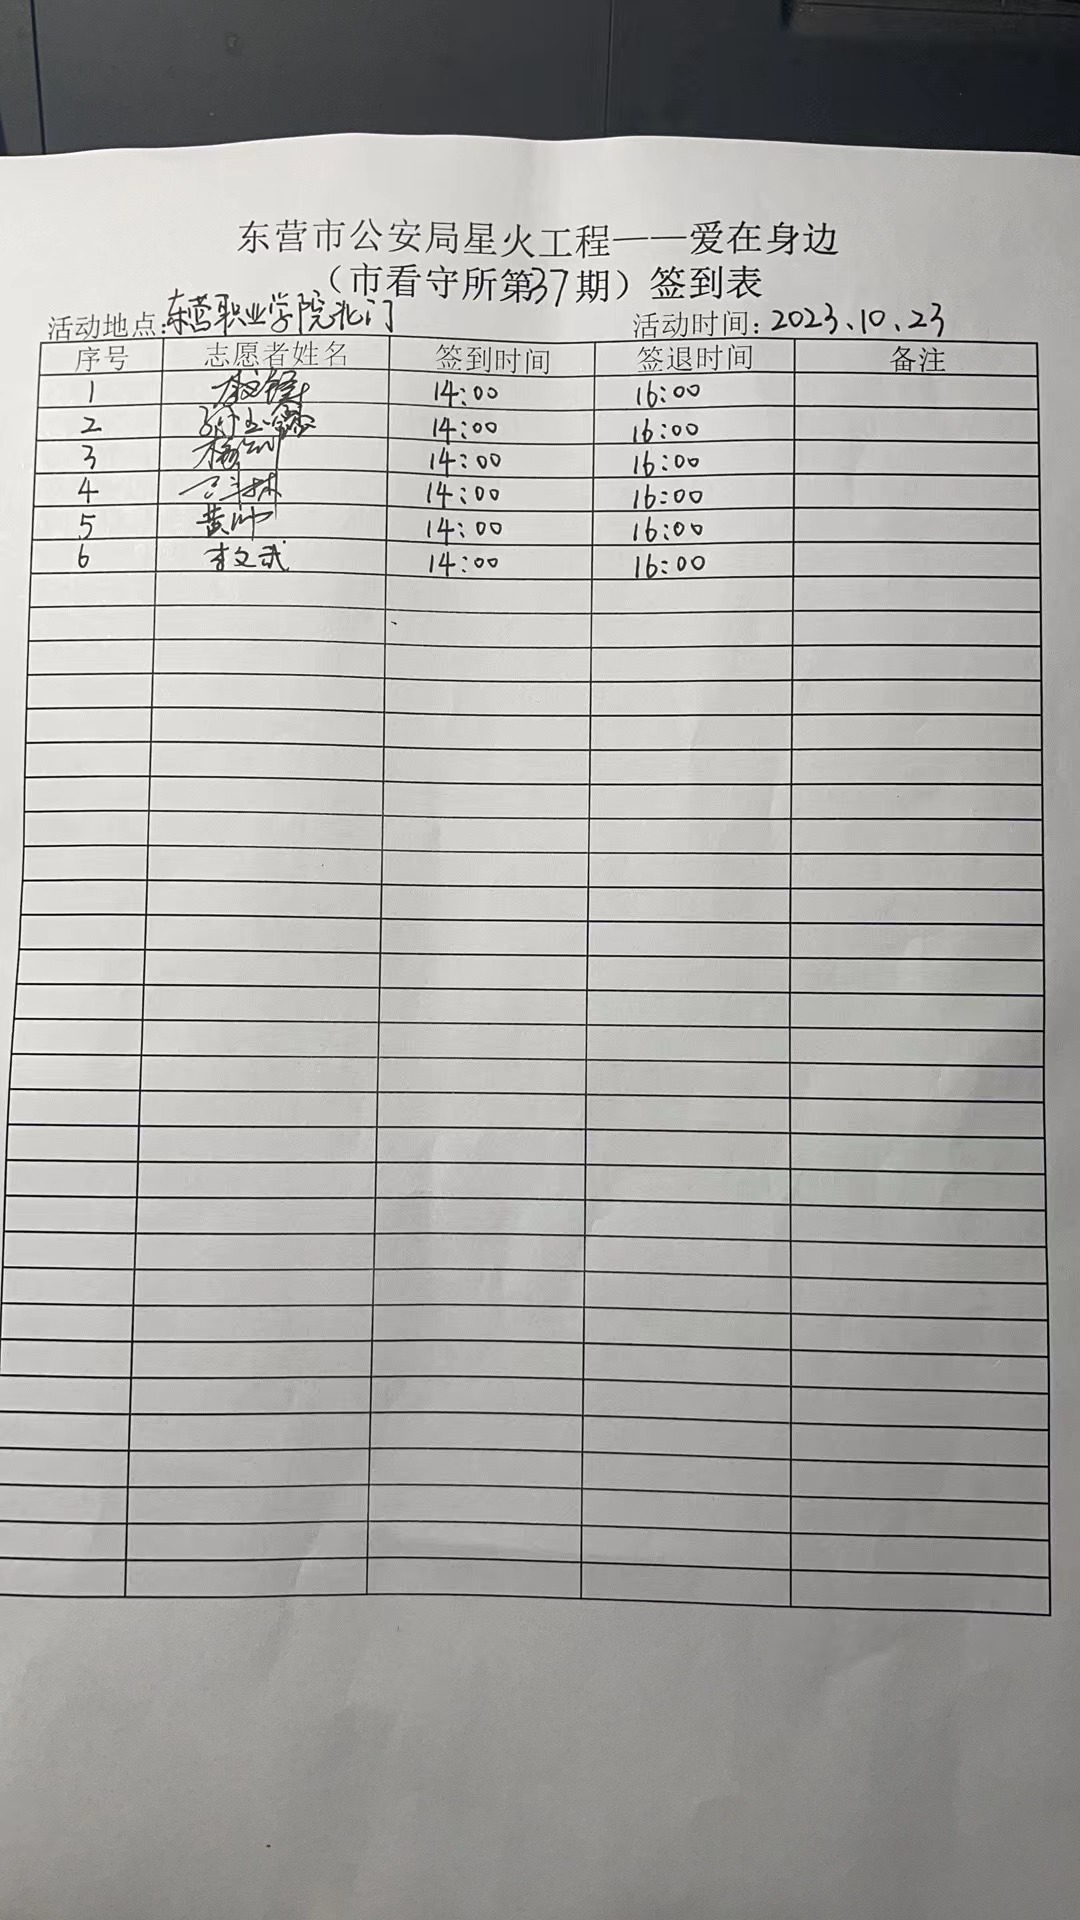 东营市公安局星火工程——爱在身边
（市看守所第37期）签到表
活动地点:东营职业学院北门 活动时间:2023.10.23
序号 志愿者姓名 签到时间 签退时间 备注
1 14:00 16:00
2 14:00 16:00
3 14:00 16:00
4 14:00 16:00
5 黄帅 14:00 16:00
6 李文武 14:00 16:00